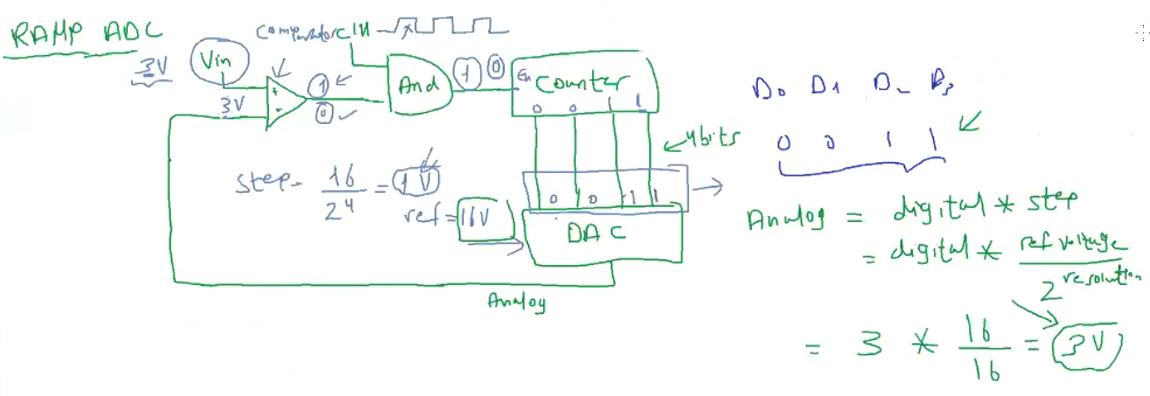 RAMP ADC
3V
Vin
3V
+
-
comparator
Clk
1
0
And
1 0
En
Counter
0 0 1 1
4 bits
step = 16 / 2^4 = 1 V
ref = 16V
0 0 1 1
DAC
Analog
D0 D1 D2 D3
0 0 1 1
Analog = digital * step
= digital * ref voltage / 2^resolution
= 3 * 16 / 16 = 3V